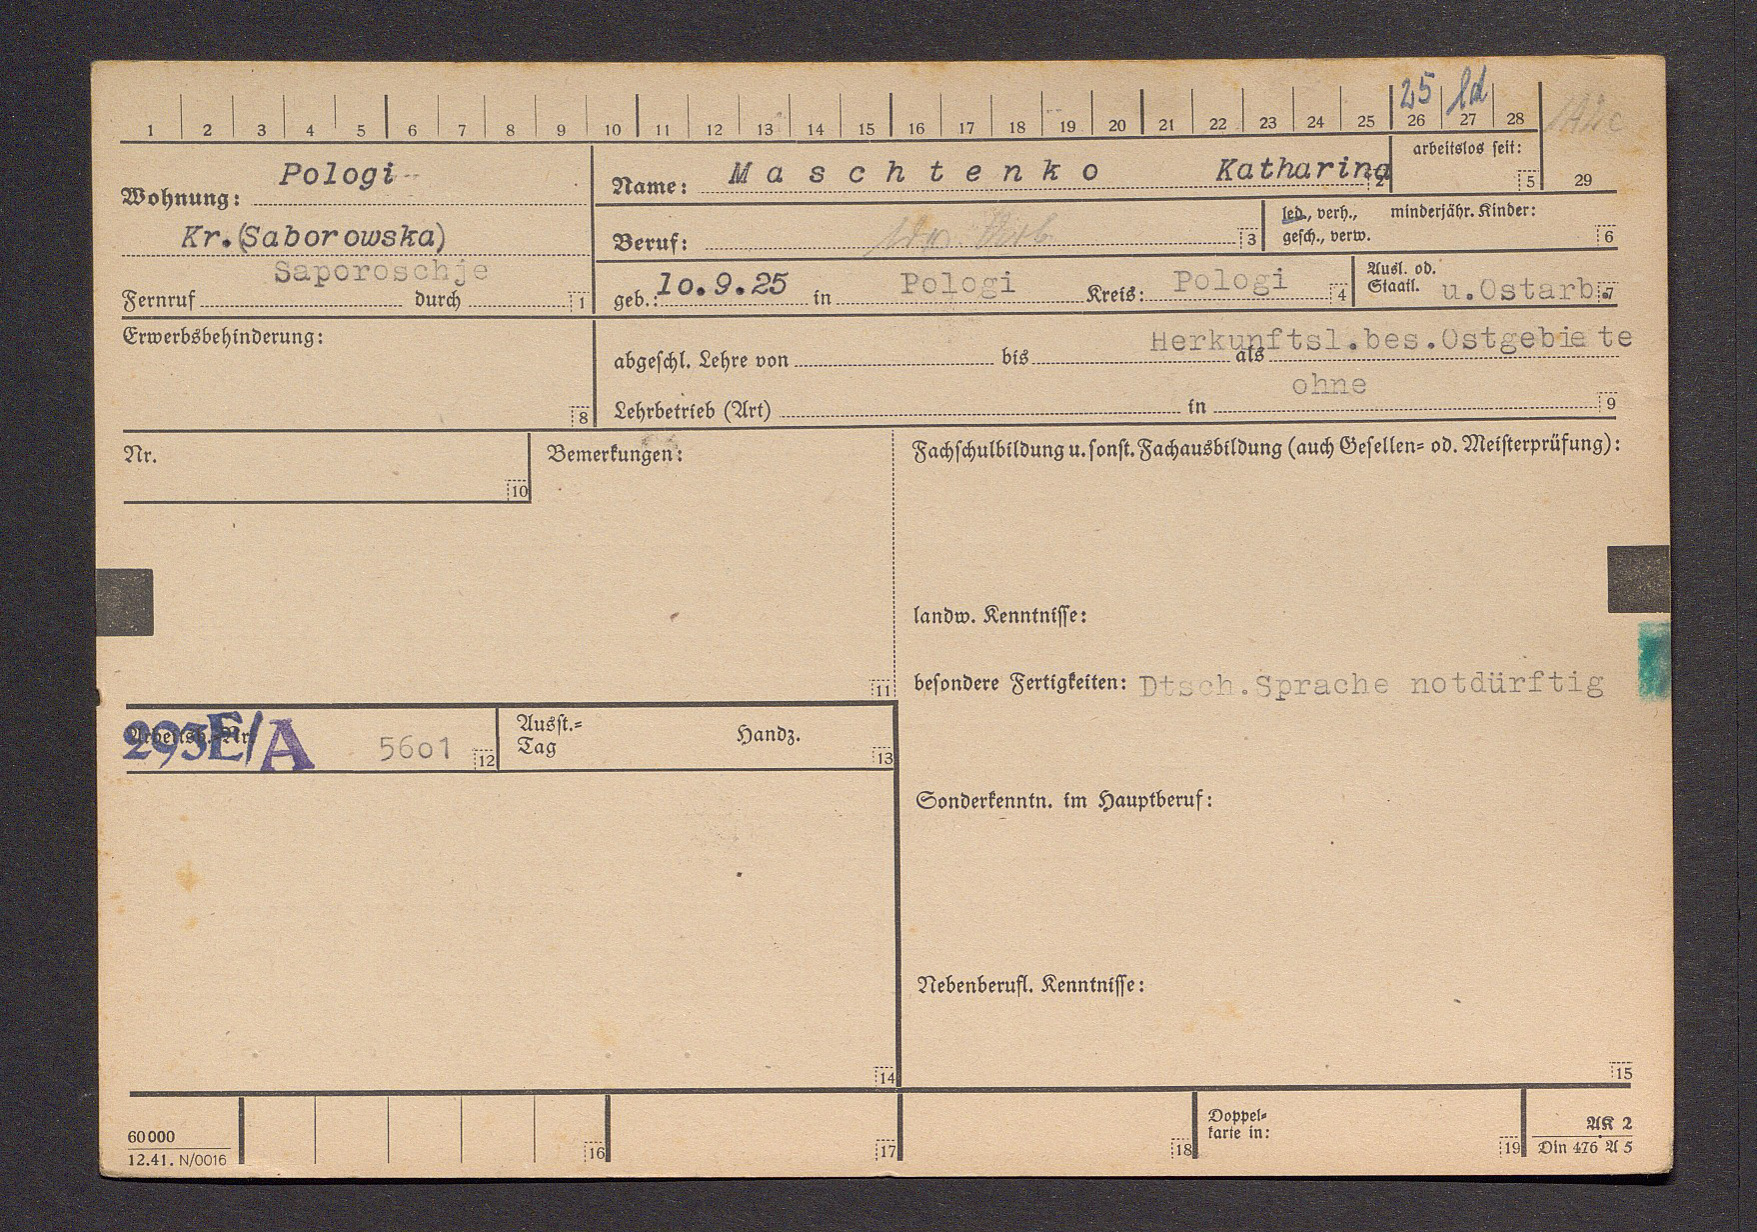 25 ld
1 2 3 4 5 6 7 8 9 10 11 12 13 14 15 16 17 18 19 20 21 22 23 24 25 26 27 28
29
Wohnung: Pologi
Kr.(Saborowska)
Saporoschje
Fernruf durch 1
Name: Maschtenko Katharina 2
arbeitslos seit: 5
Beruf: 3
led., verh., gesch., verw.
minderjähr. Kinder: 6
geb.: 10.9.25 in Pologi Kreis: Pologi 4
Ausl. od. Staatl. u.Ostarb. 7
Erwerbsbehinderung:
8
Herkunftsl.bes.Ostgebiete
abgeschl. Lehre von bis als
ohne
Lehrbetrieb (Art) in 9
Nr.
10
Bemerkungen:
11
Fachschulbildung u. sonst. Fachausbildung (auch Gesellen- od. Meisterprüfung):
landw. Kenntnisse:
besondere Fertigkeiten: Dtsch.Sprache notdürftig
Arbeitsb.-Nr. 293E/A 5601 12
Ausst.-
Tag
Handz.
13
Sonderkenntn. im Hauptberuf:
Nebenberufl. Kenntnisse:
14
15
60000
12.41. N/0016
16
17
18
Doppel-
karte in:
19
AK 2
Din 476 A 5